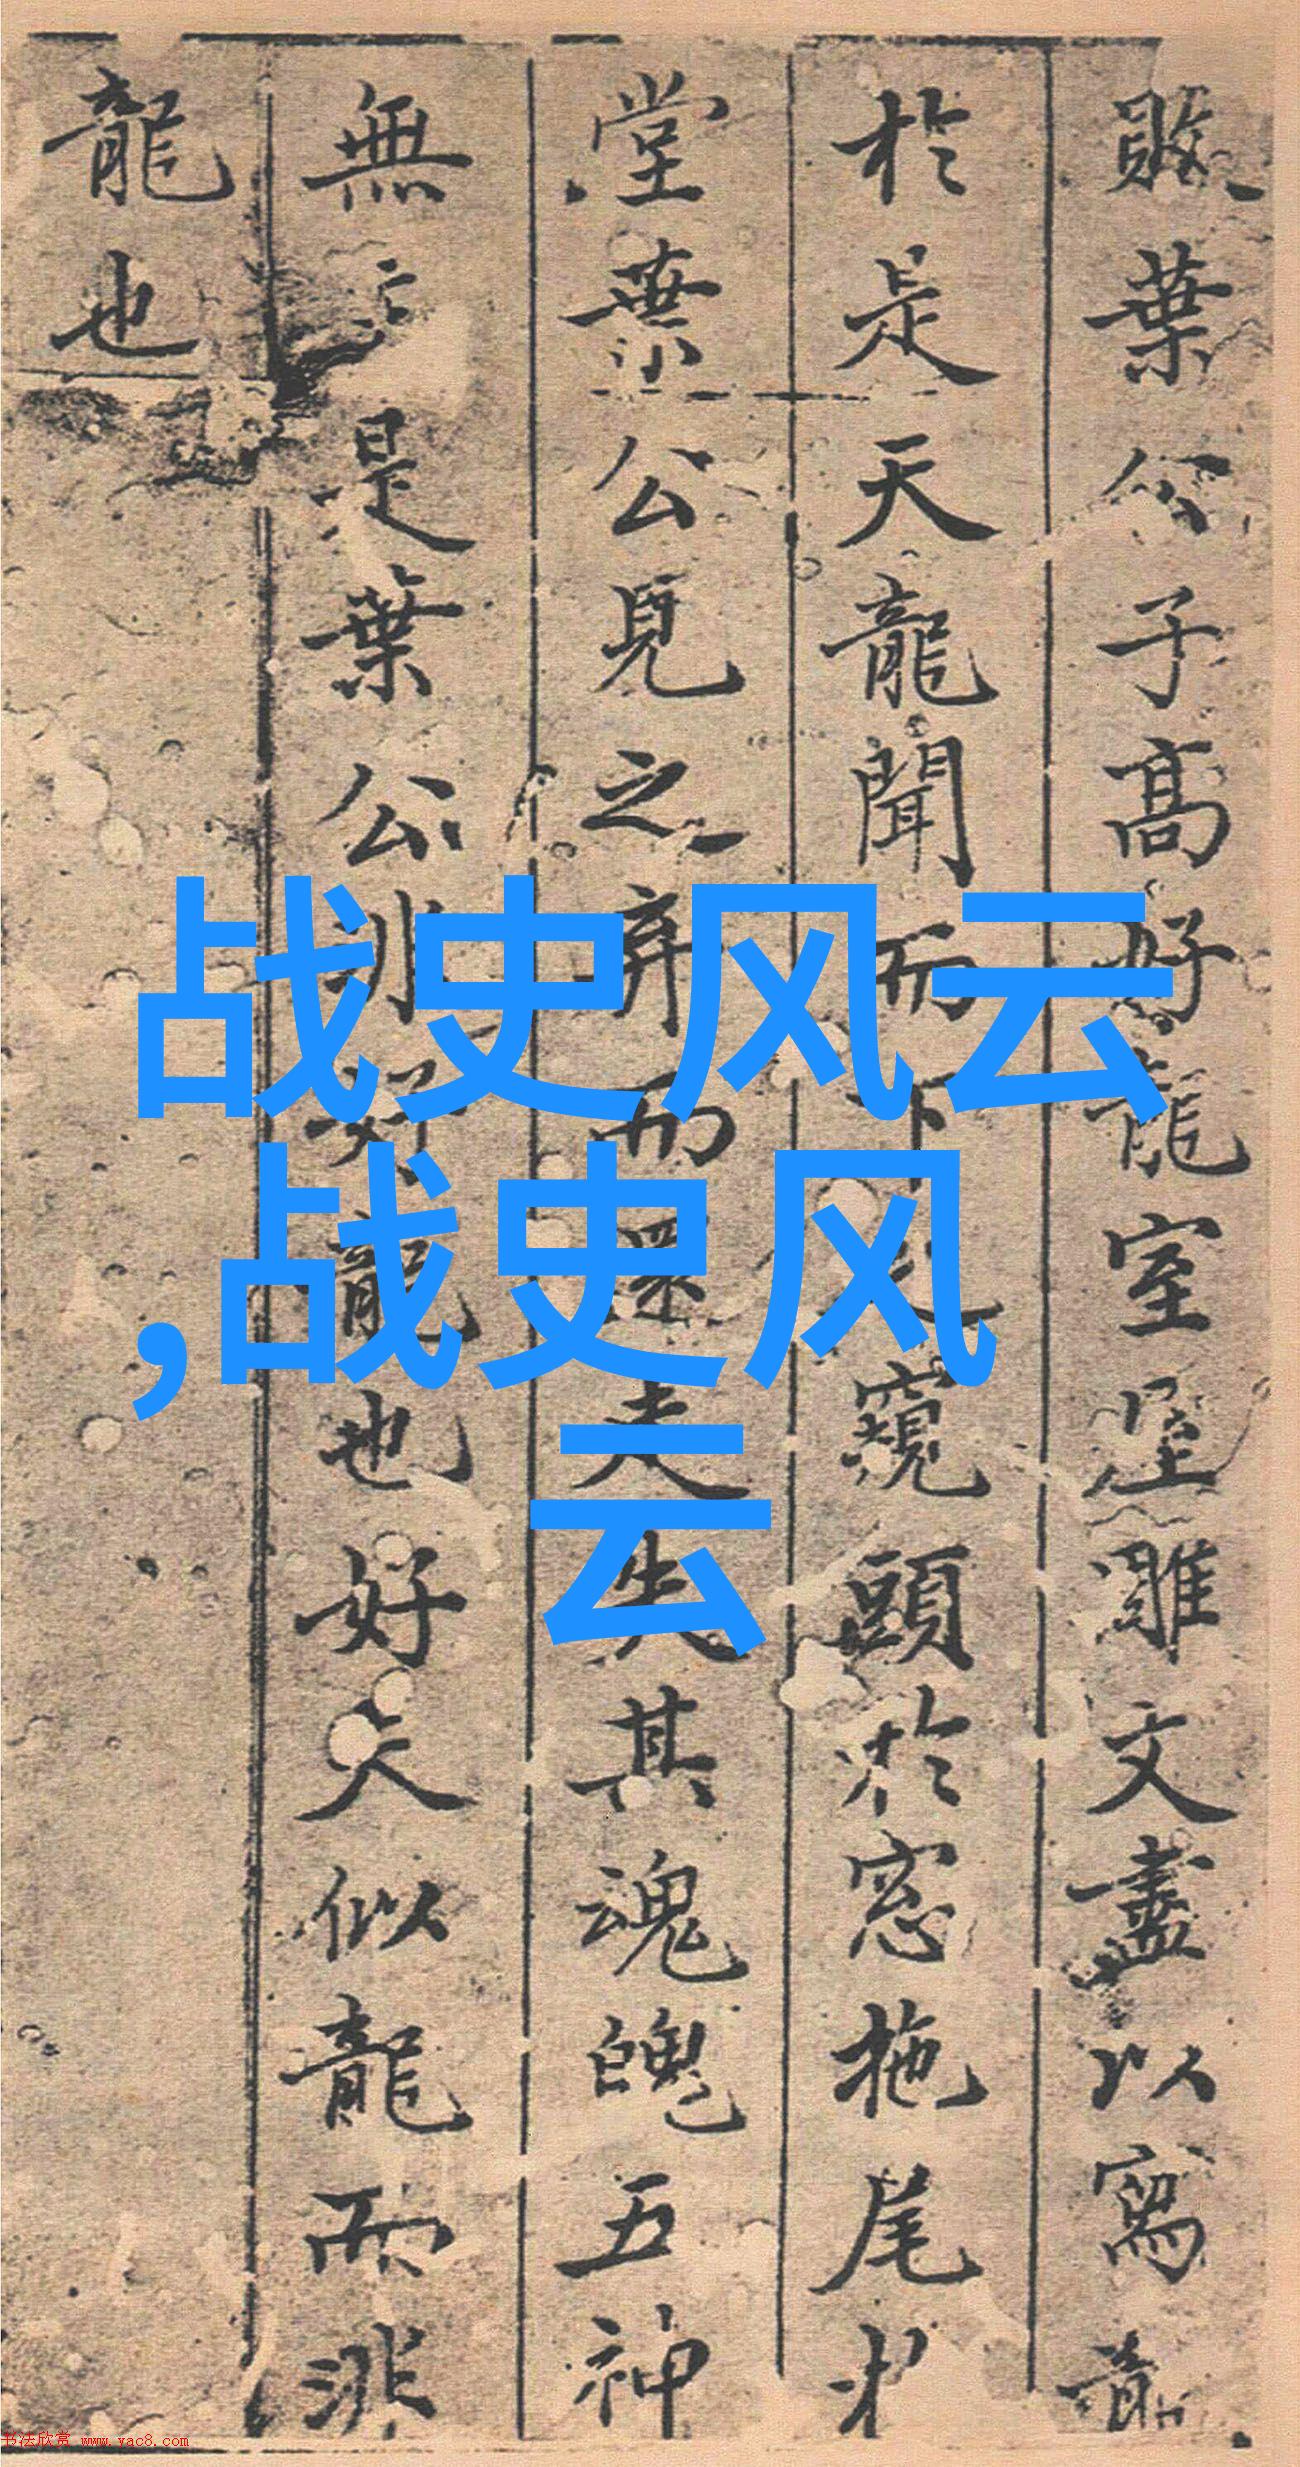 敗葉公子高好龍室屋雕文盡以寫龍
於是天龍聞而下之窺頭於窓拖尾於
堂葉公見之弃而還走失其魂魄五神
無主是葉公非好龍也好夫似龍而非
龍也
战史风云
,战史风
云
书法欣赏 www.yac8.com